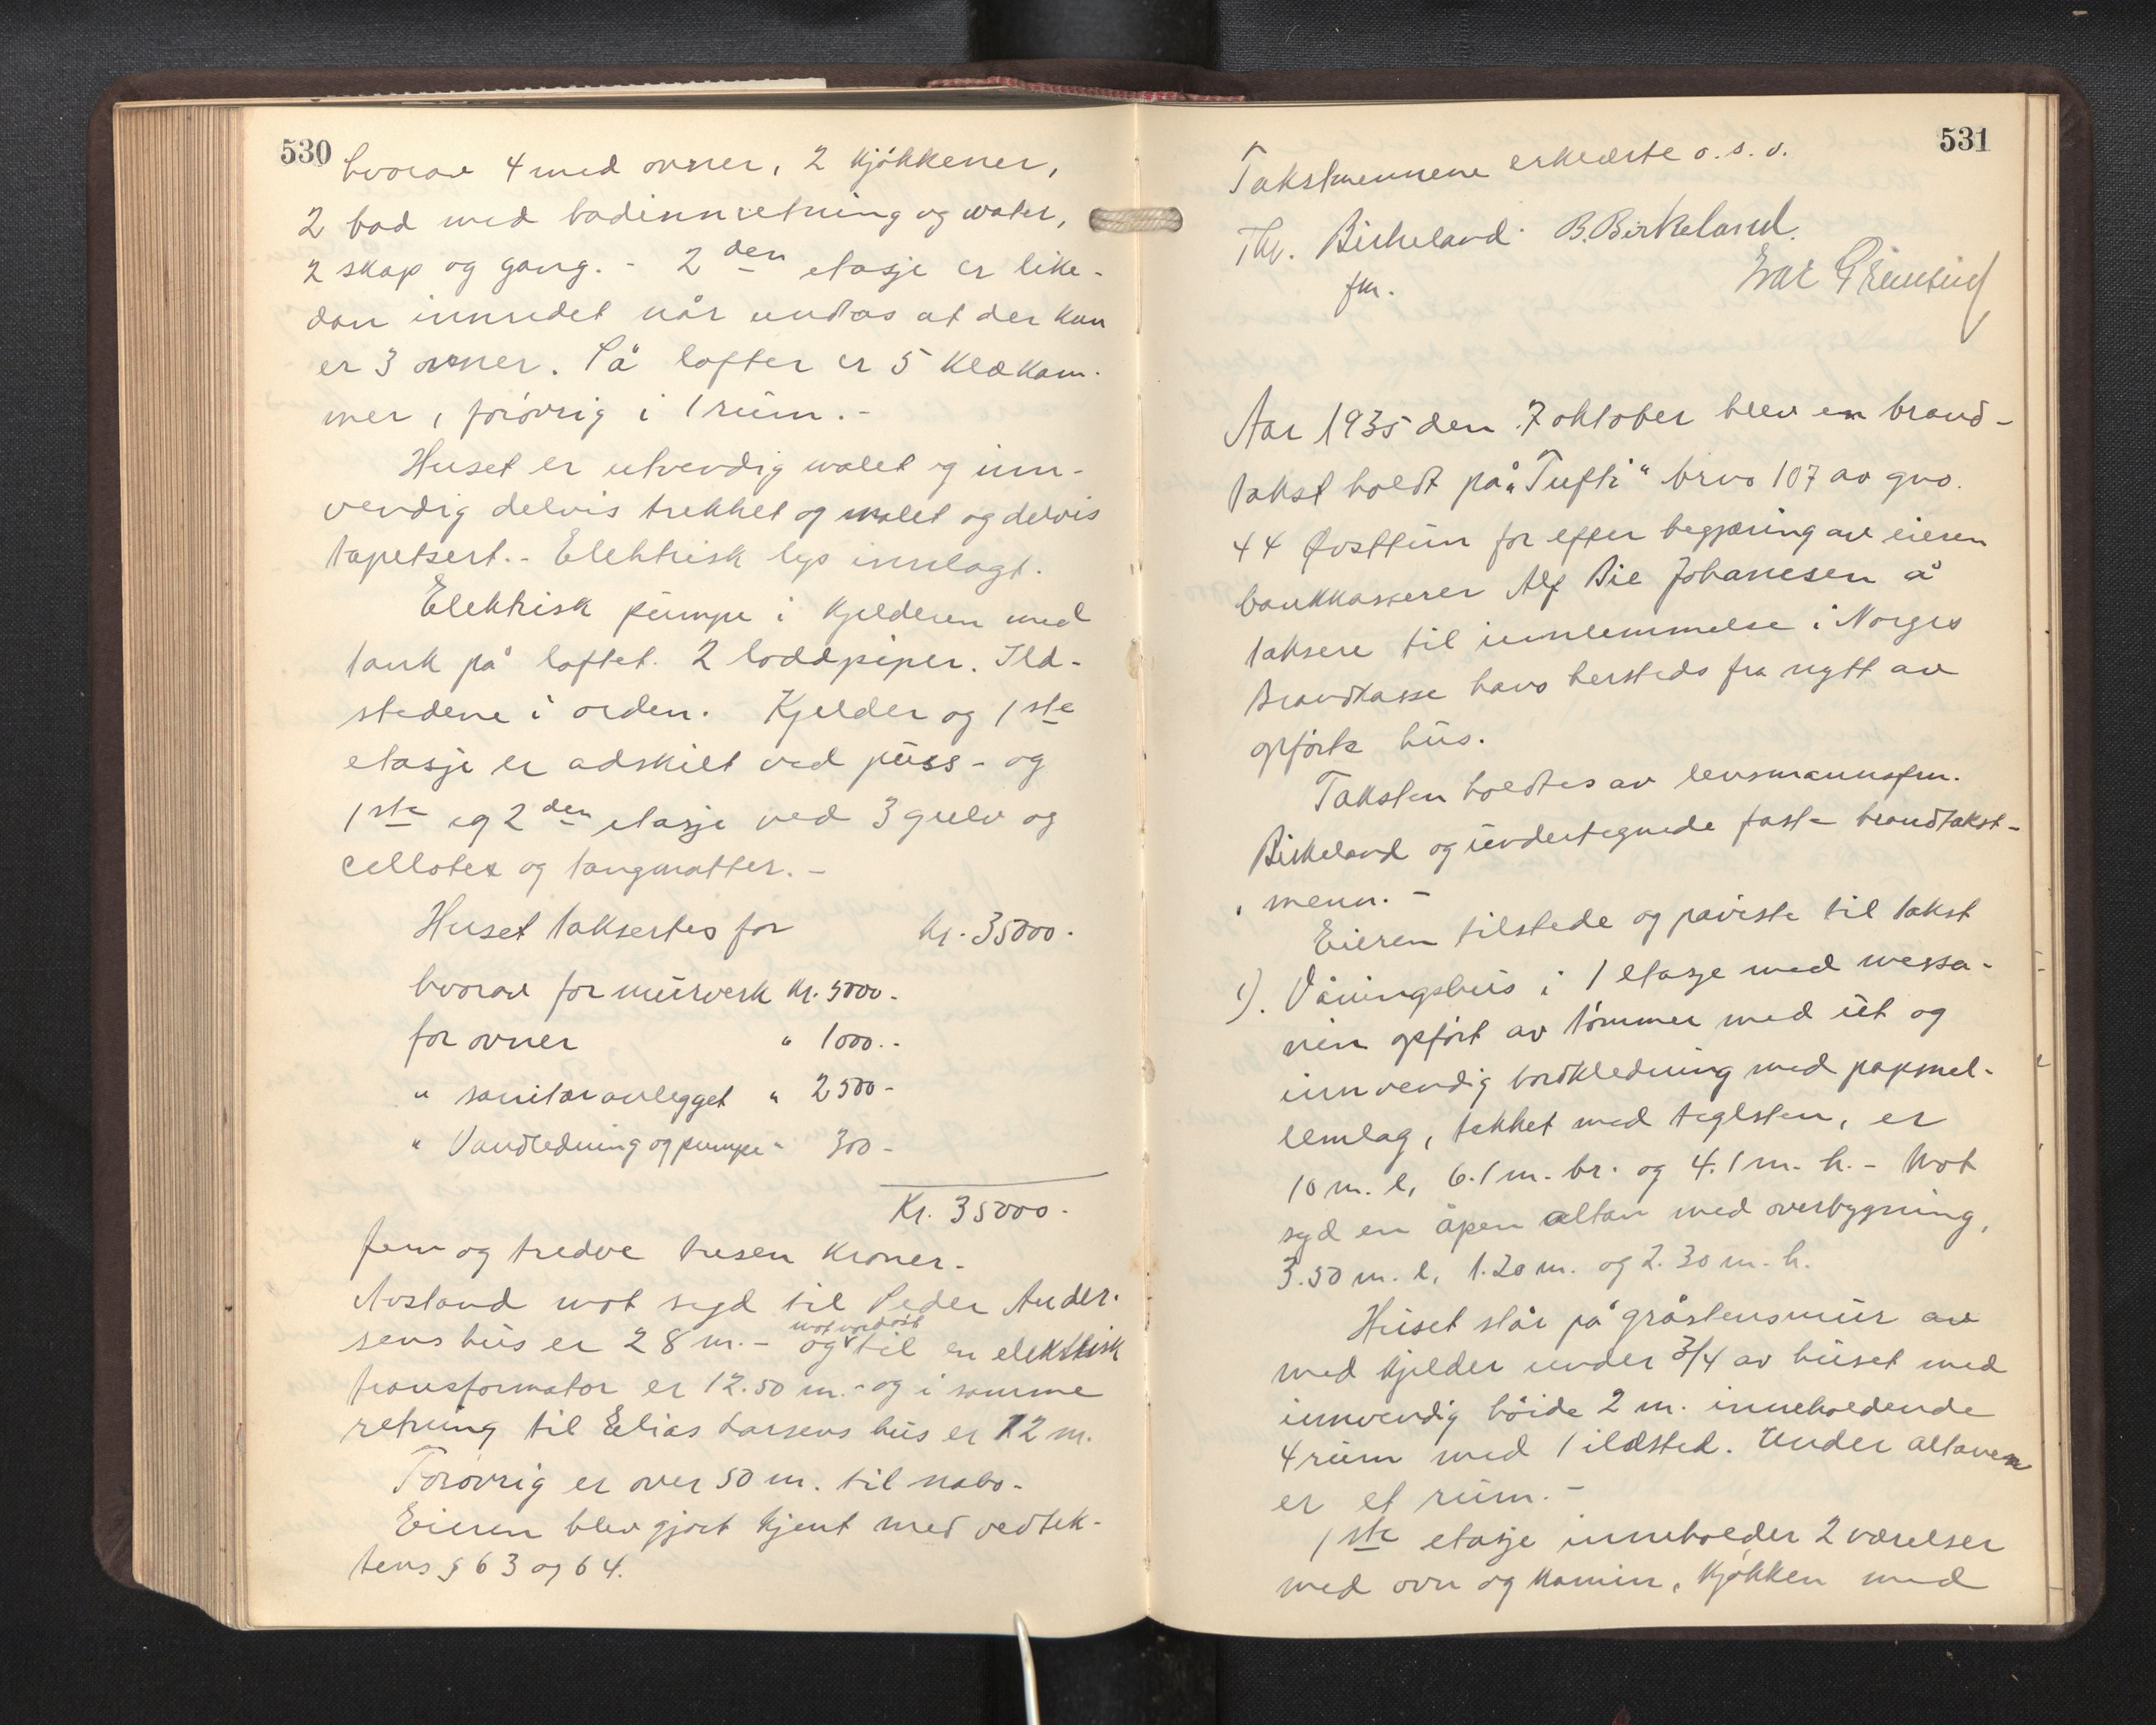 530
hvorav 4 med ovner, 2 kjøkkener,
2 bad med badinnretning og water,
2 skap og gang. - 2den etasje er like-
dan innredet når undtas at der kun
er 3 ovner. På lofter er 5 klækam-
mer, forøvrig i 1 rum. -
Huset er utvendig malet og inn-
vendig delvis trekket og malet og delvis
tapetsert. - Elektrisk lys innlagt.
Elektrisk pumpe i kjelderen med
tank på loftet. 2 loddpiper. Ild-
stedene i orden. Kjelder og 1ste
etasje er adskilt ved puss- og
1ste og 2den etasje ved 3 gulv og
cellotex og tangmatter. -
Huset taksertes for kr. 35000.
hvorav for murverk kr. 5000.-
for ovner " 1000.-
" sanitæranlegget " 2500-
" Vandledning og pumpe " 300-
Kr. 35000.
fem og tredve tusen kroner.
Avstand mot syd til Peder Ander-
sens hus er 28 m. - og mot nordøst til en elektrisk
transformator er 12.50 m. - og i samme
retning til Elias Larsens hus er 12 m.
Forøvrig er over 50 m. til nabo.
Eieren blev gjort kjent med vedtek-
tens § 63 og 64.
531
Takstmennene erklærte o.s.v.
Th. Birkeland. B. Birkeland.
fm.
Aar 1935 den 7 oktober blev en brand-
takst holdt på "Tufti" brno 107 av gno.
44 Øvsttun for efter begjæring av eieren
bankkasserer Alf Bie Johanesen å
taksere til innlemmelse i Norges
Brandkasse hans hersteds fra nytt av
opførte hus.
Taksten holdtes av lensmannsfm.
Birkeland og undertegnede faste brandtakst-
menn. -
Eieren tilstede og påviste til takst
1). Våningshus i 1 etasje med messa-
nin opført av tømmer med ut og
innvendig bordkledning med papmel-
lemlag, tekket med teglsten, er
10 m. l, 6.1 m. br. og 4.1 m. h. - Mot
syd en åpen altan med overbygning,
3.50 m. l, 1.20 m. og 2.30 m. h.
Huset står på gråstensmur av
med kjelder under 3/4 av huset med
innvendig høide 2 m. inneholdende
4 rum med 1 ildsted. Under altanen
er et rum. -
1ste etasje inneholder 2 værelser
med ovn og kamin, kjøkken med